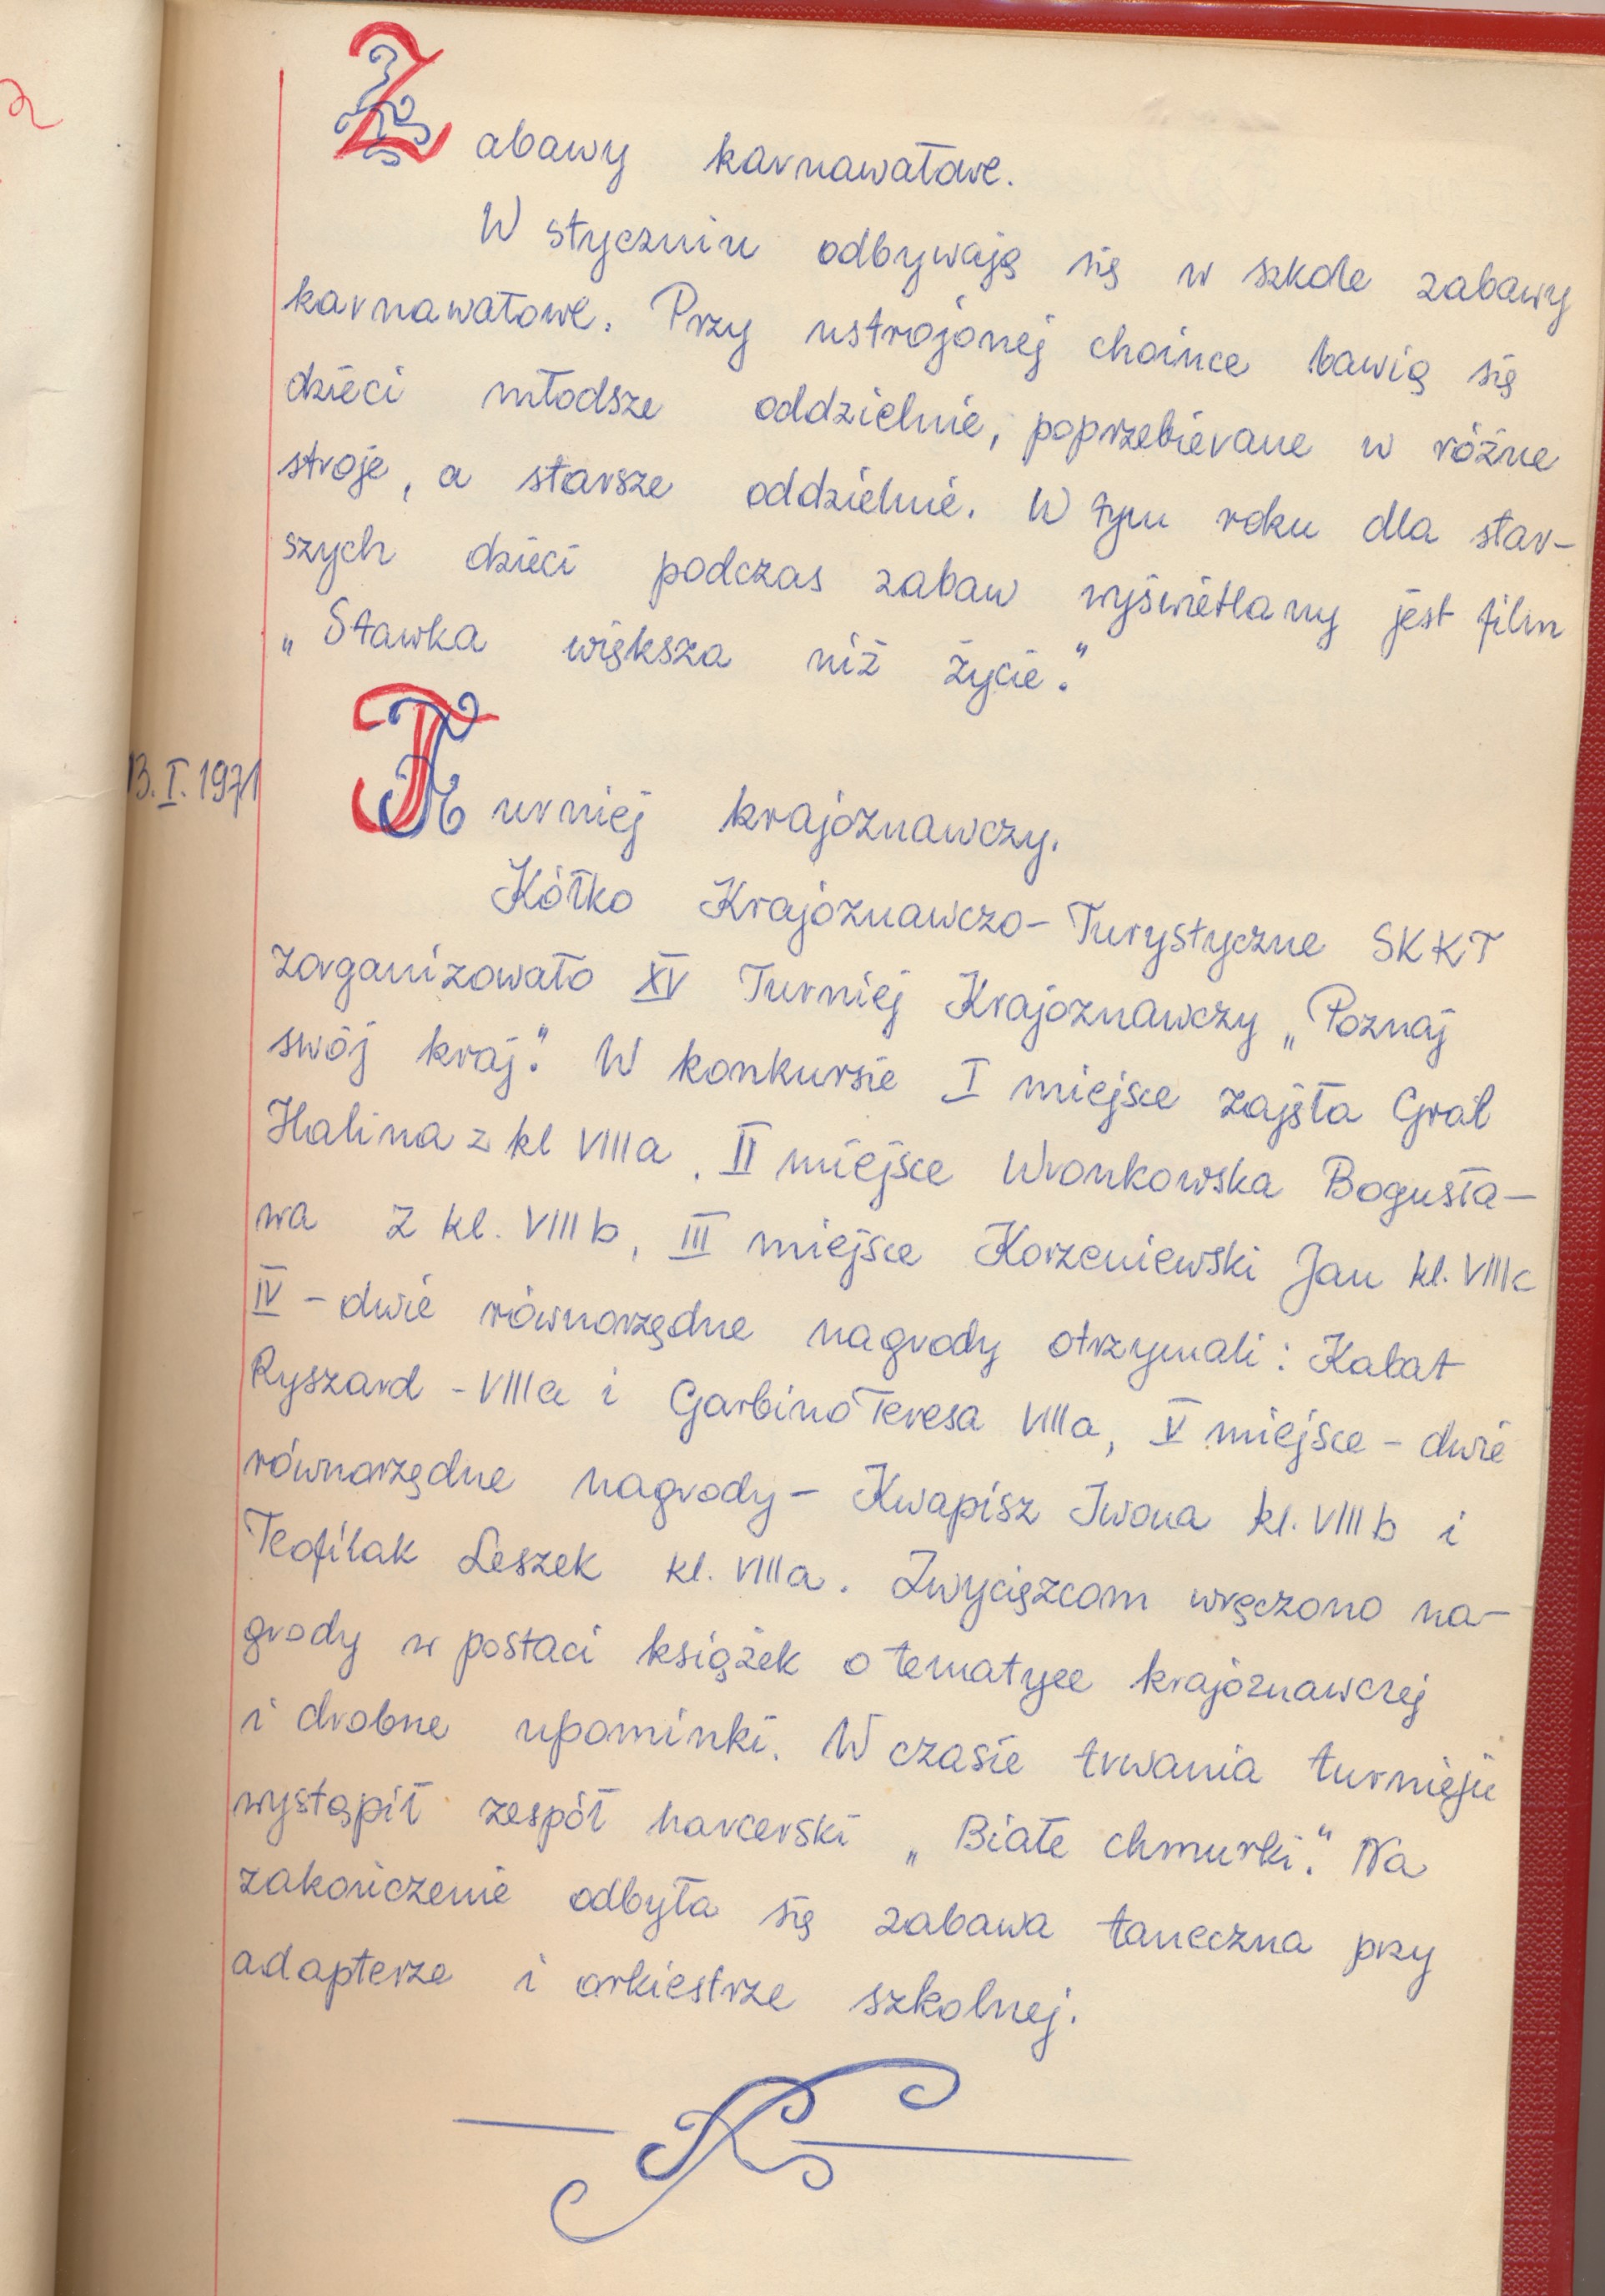 Zabawy karnawałowe.
W styczniu odbywają się w szkole zabawy
karnawałowe. Przy ustrojonej choince bawią się
dzieci młodsze oddzielnie, poprzebierane w różne
stroje, a starsze oddzielnie. W tym roku dla star-
szych dzieci podczas zabaw wyświetlany jest film
„Stawka większa niż życie."
13.I.1971
Turniej krajoznawczy.
Kółko Krajoznawczo-Turystyczne SKKT
zorganizowało XV Turniej Krajoznawczy „Poznaj
swój kraj." W konkursie I miejsce zajęła Gral
Halina z kl VIIIa, II miejsce Wronkowska Bogusła-
wa z kl. VIIIb, III miejsce Korzeniewski Jan kl. VIIIc
IV - dwie równorzędne nagrody otrzymali: Kabat
Ryszard - VIIIa i Garbino Teresa VIIIa, V miejsce - dwie
równorzędne nagrody - Kwapisz Iwona kl. VIIIb i
Teofilak Leszek kl. VIIIa. Zwycięzcom wręczono na-
grody w postaci książek o tematyce krajoznawczej
i drobne upominki. W czasie trwania turnieju
wystąpił zespół harcerski „Białe chmurki." Na
zakończenie odbyła się zabawa taneczna przy
adapterze i orkiestrze szkolnej.